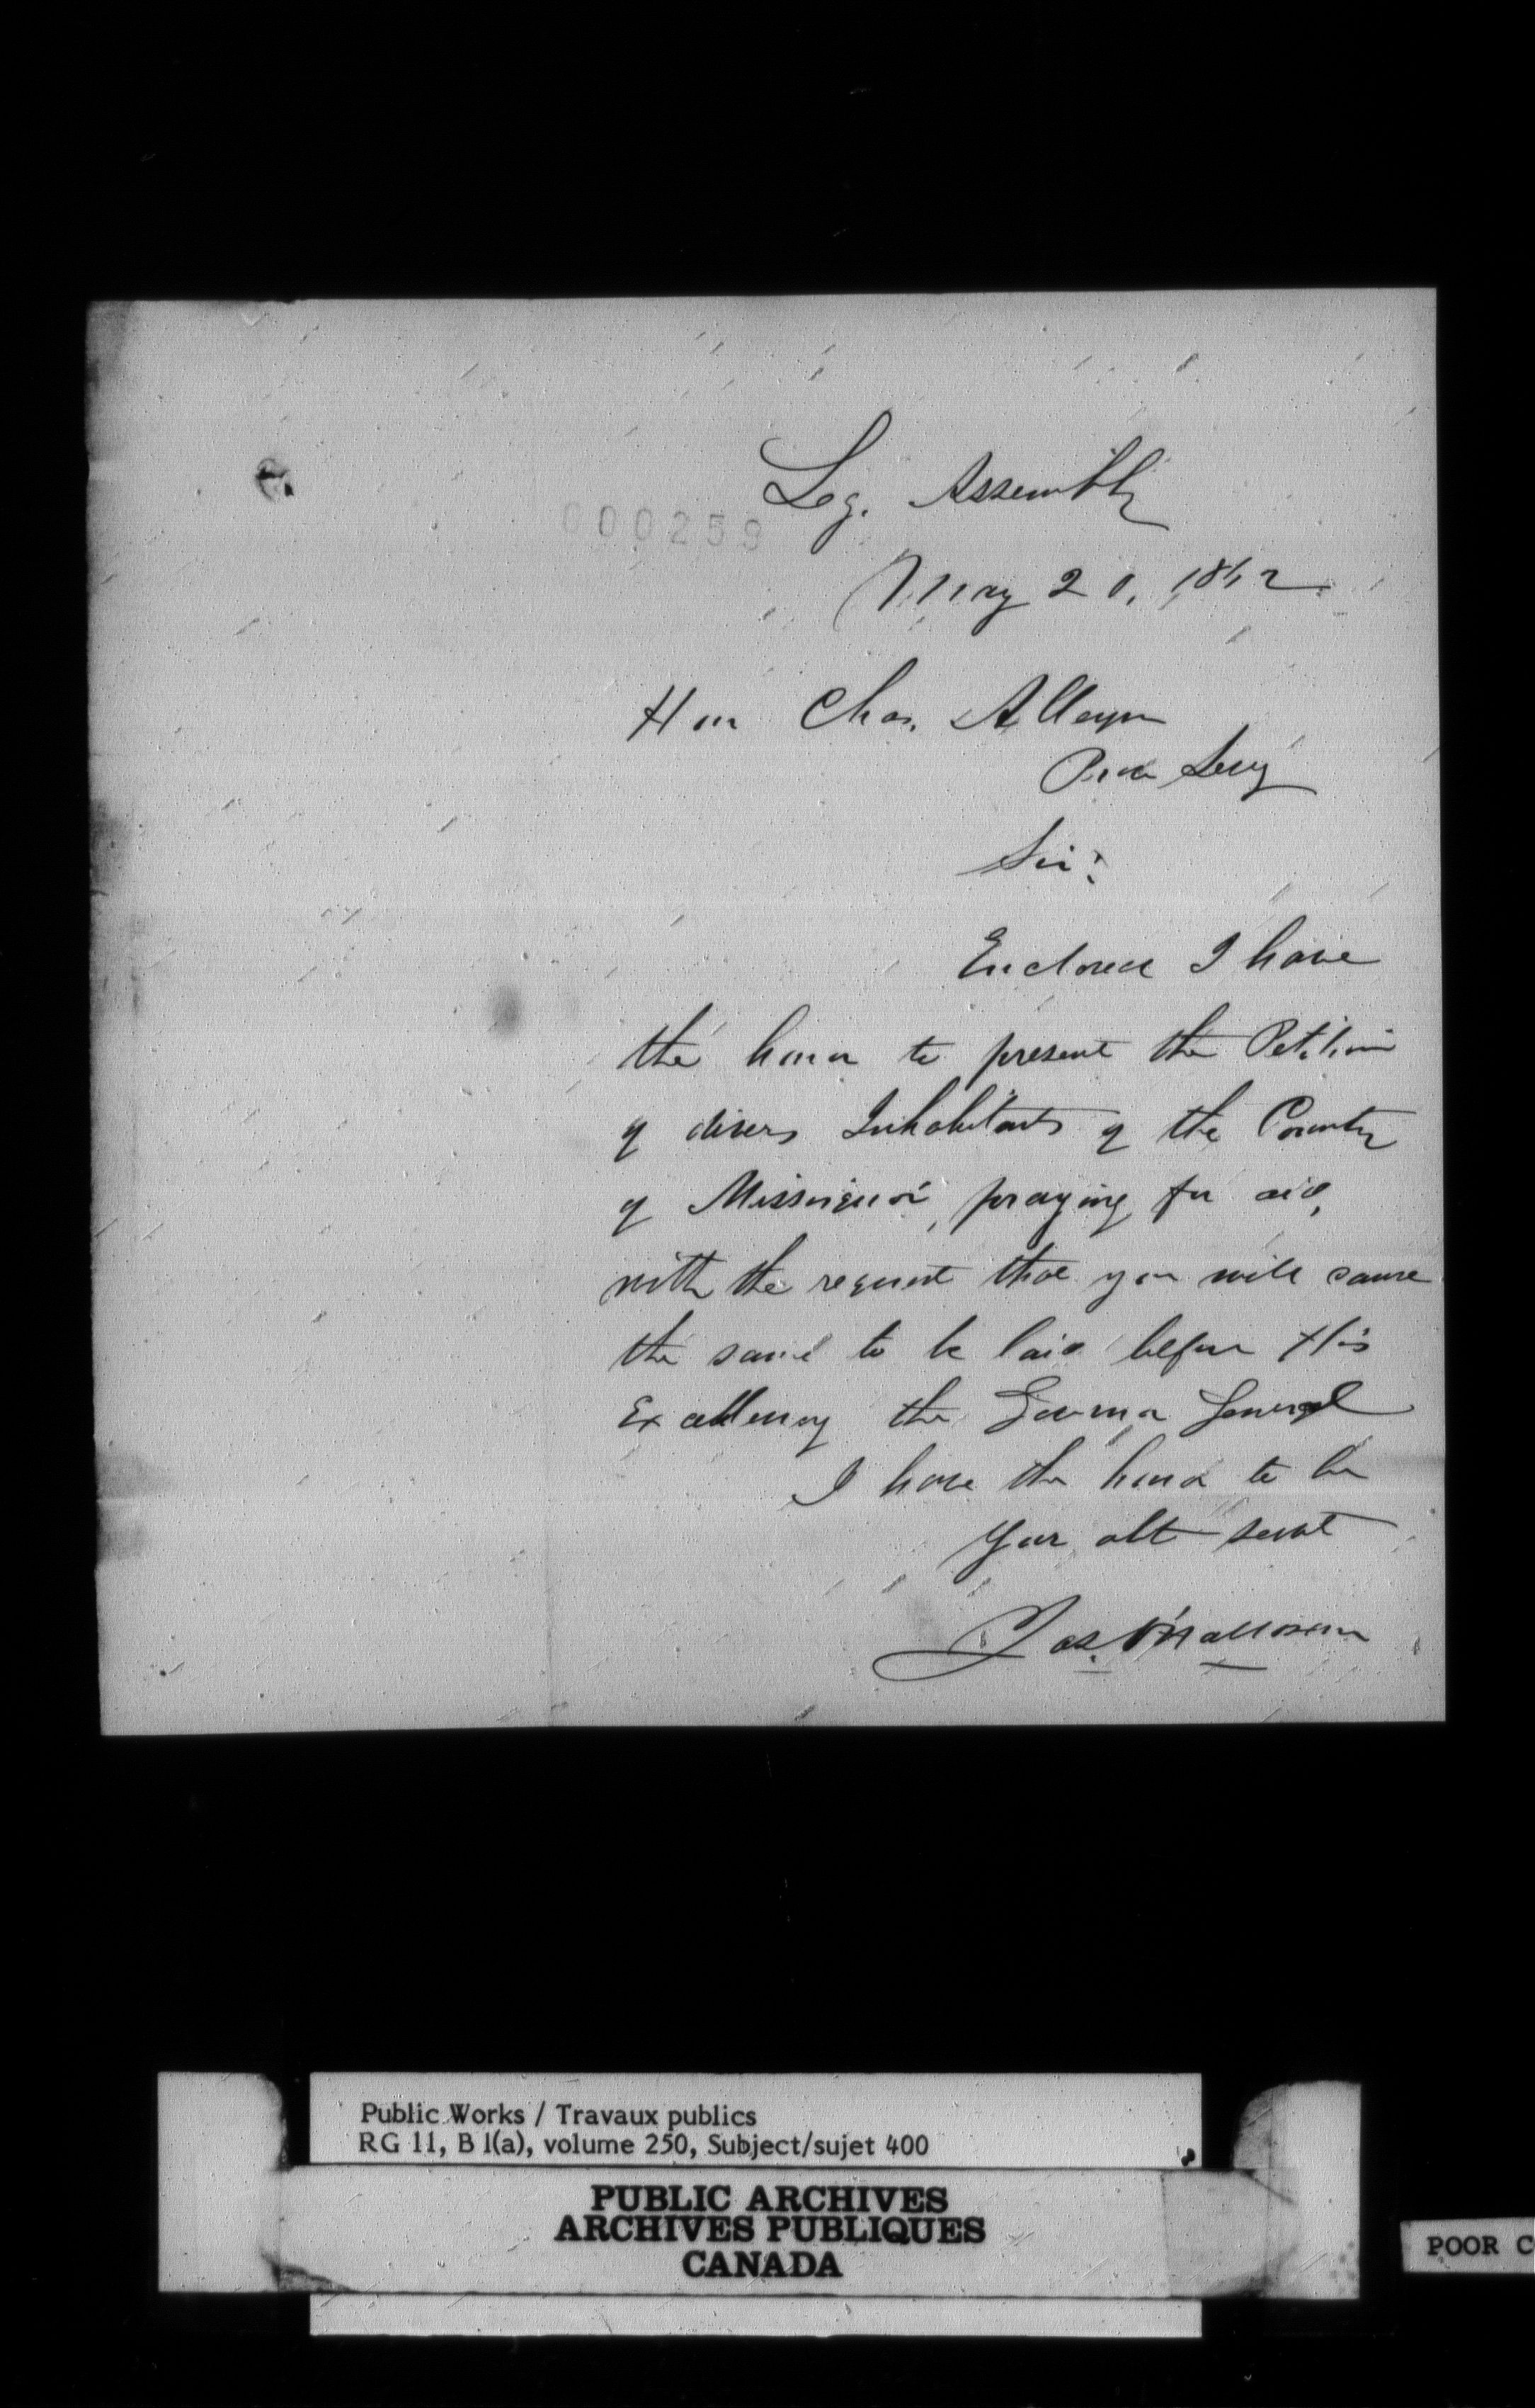 000259
Leg. Assembly
May 20, 1862
Hon Chas. Alleyn
Prov Secy
Sir:
Enclosed I have
the honor to present the Petition
of divers Inhabitants of the County
of Missisquoi, praying for aid,
with the request that you will cause
the same to be laid before His
Excellency the Governor General
I have the honor to be
Your obt servt
Jas. O'Halloran
Public Works / Travaux publics
RG 11, B 1(a), volume 250, Subject/sujet 400
PUBLIC ARCHIVES
ARCHIVES PUBLIQUES
CANADA
POOR C